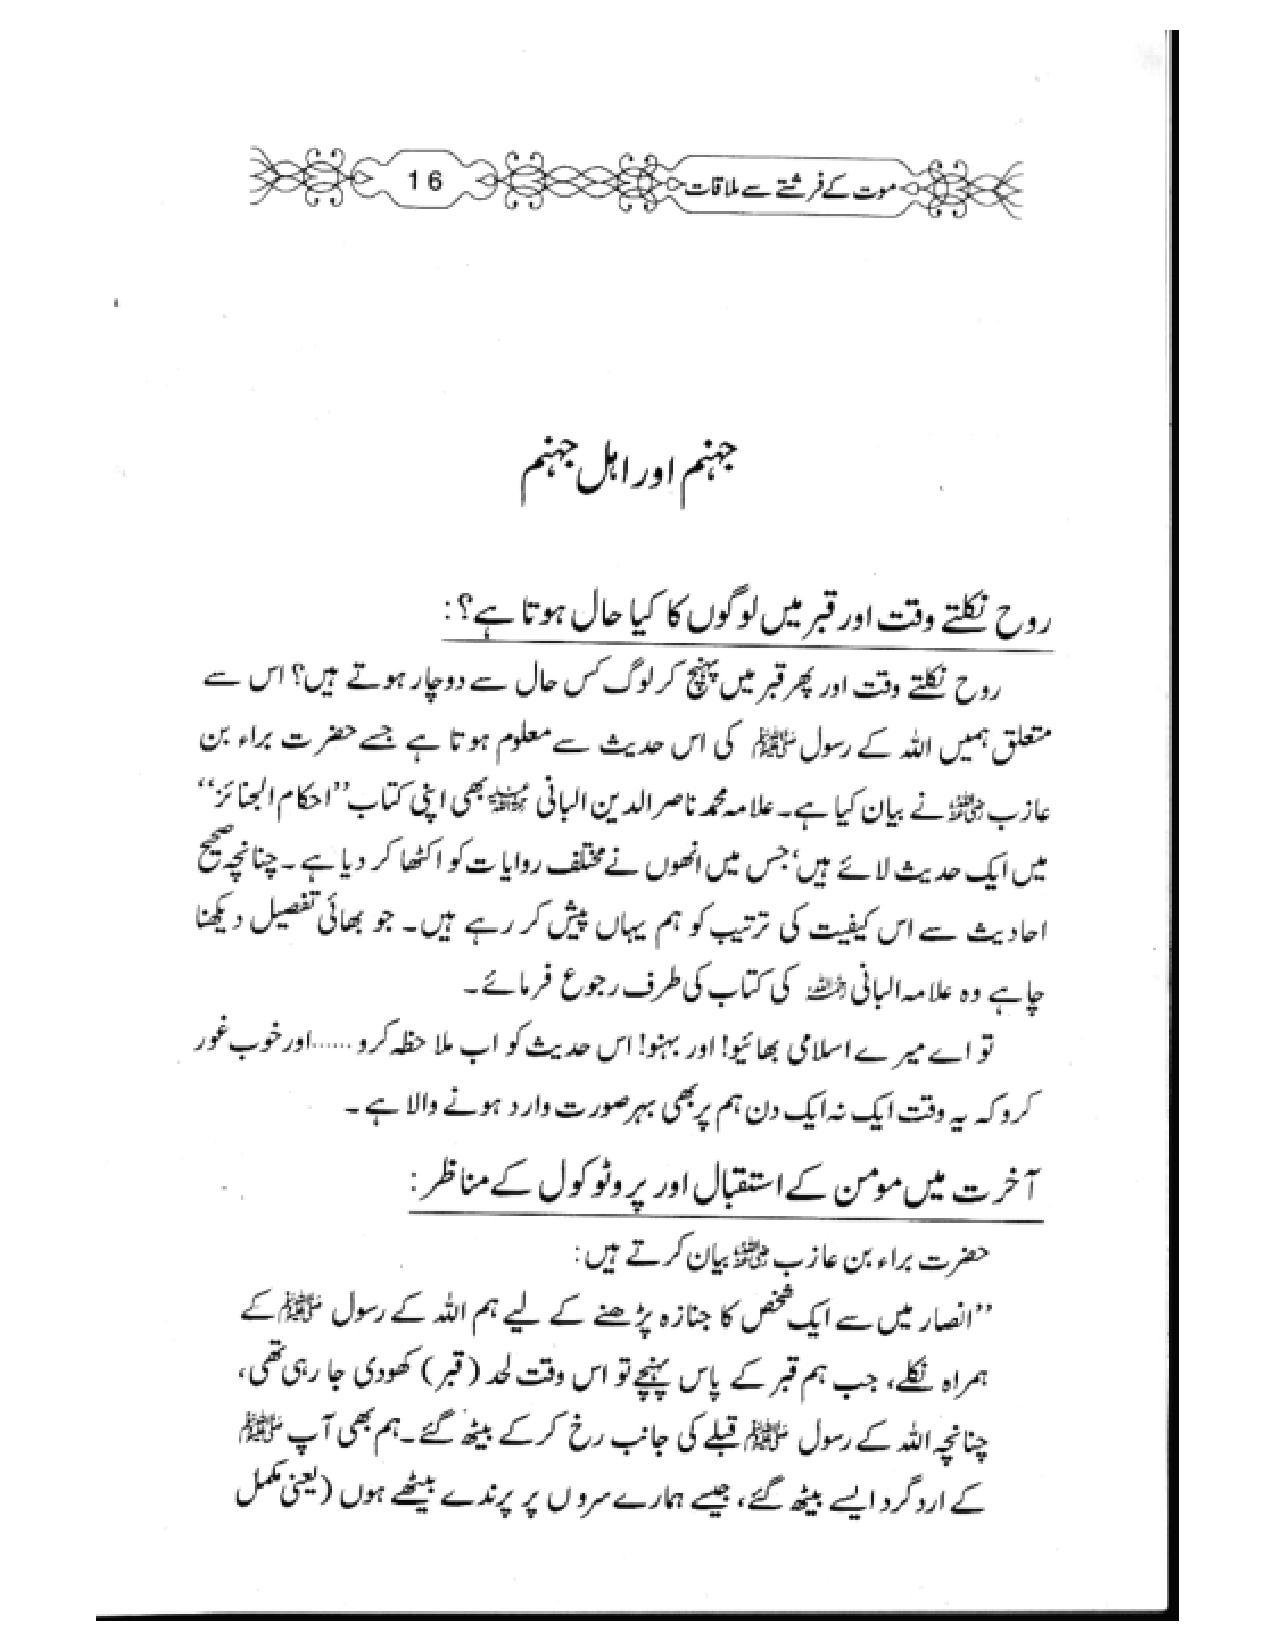 موت کے فرشتے سے ملاقات 16
جہنم اور اہل جہنم
روح نکلتے وقت اور قبر میں لوگوں کا کیا حال ہوتا ہے؟:
روح نکلتے وقت اور پھر قبر میں پہنچ کر لوگ کس حال سے دوچار ہوتے ہیں؟ اس سے
متعلق ہمیں اللہ کے رسول ﷺ کی اس حدیث سے معلوم ہوتا ہے جسے حضرت براء بن
عازب رضی اللہ عنہ نے بیان کیا ہے۔ علامہ محمد ناصر الدین البانی رحمہ اللہ بھی اپنی کتاب ”احکام الجنائز“
میں ایک حدیث لائے ہیں، جس میں انھوں نے مختلف روایات کو اکٹھا کر دیا ہے۔ چنانچہ صحیح
احادیث سے اس کیفیت کی ترتیب کو ہم یہاں پیش کر رہے ہیں۔ جو بھائی تفصیل دیکھنا
چاہے وہ علامہ البانی رحمہ اللہ کی کتاب کی طرف رجوع فرمائے۔
تو اے میرے اسلامی بھائیو! اور بہنو! اس حدیث کو اب ملاحظہ کرو...... اور خوب غور
کرو کہ یہ وقت ایک نہ ایک دن ہم پر بھی بہر صورت وارد ہونے والا ہے۔
آخرت میں مومن کے استقبال اور پروٹوکول کے مناظر:
حضرت براء بن عازب رضی اللہ عنہ بیان کرتے ہیں:
”انصار میں سے ایک شخص کا جنازہ پڑھنے کے لیے ہم اللہ کے رسول ﷺ کے
ہمراہ نکلے، جب ہم قبر کے پاس پہنچے تو اس وقت لحد (قبر) کھودی جا رہی تھی،
چنانچہ اللہ کے رسول ﷺ قبلے کی جانب رخ کر کے بیٹھ گئے۔ ہم بھی آپ ﷺ
کے ارد گرد ایسے بیٹھ گئے، جیسے ہمارے سروں پر پرندے بیٹھے ہوں (یعنی مکمل